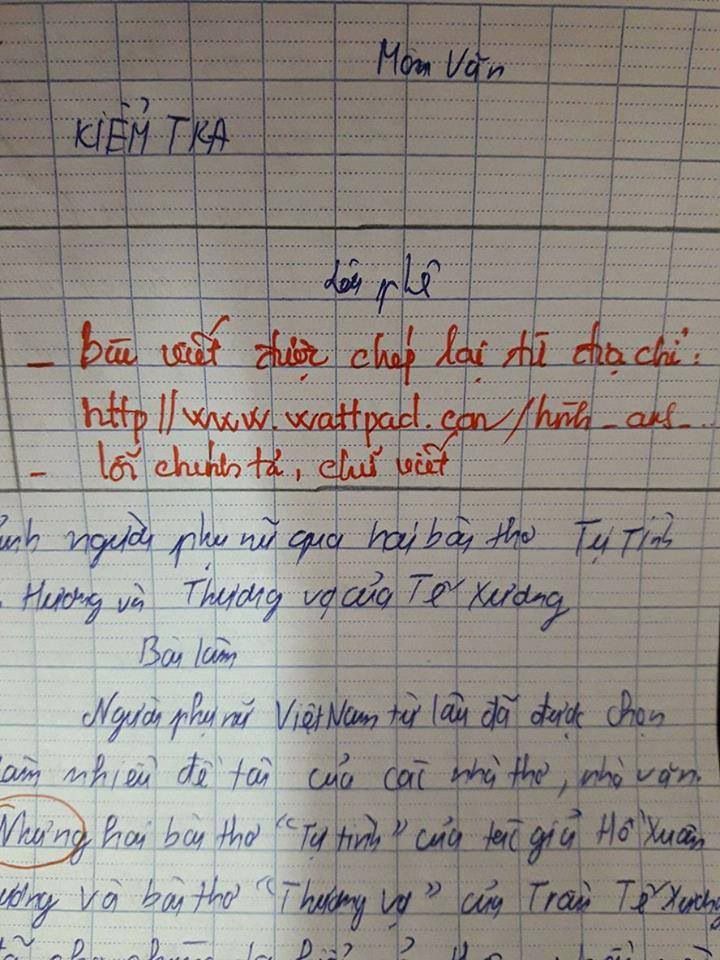 Môn Văn
KIỂM TRA
Lời phê
- Bài viết được chép lại từ địa chỉ:
http//www.wattpad.com/hình_ani_...
- lỗi chính tả, chữ viết
ảnh người phụ nữ qua hai bài thơ Tự Tình
Hương và Thương vợ của Tế Xương
Bài làm
Người phụ nữ Việt Nam từ lâu đã được chọn
làm nhiều đề tài của các nhà thơ, nhà văn.
Nhưng hai bài thơ "Tự tình" của tác giả Hồ Xuân
ương và bài thơ "Thương vợ" của Trần Tế Xương